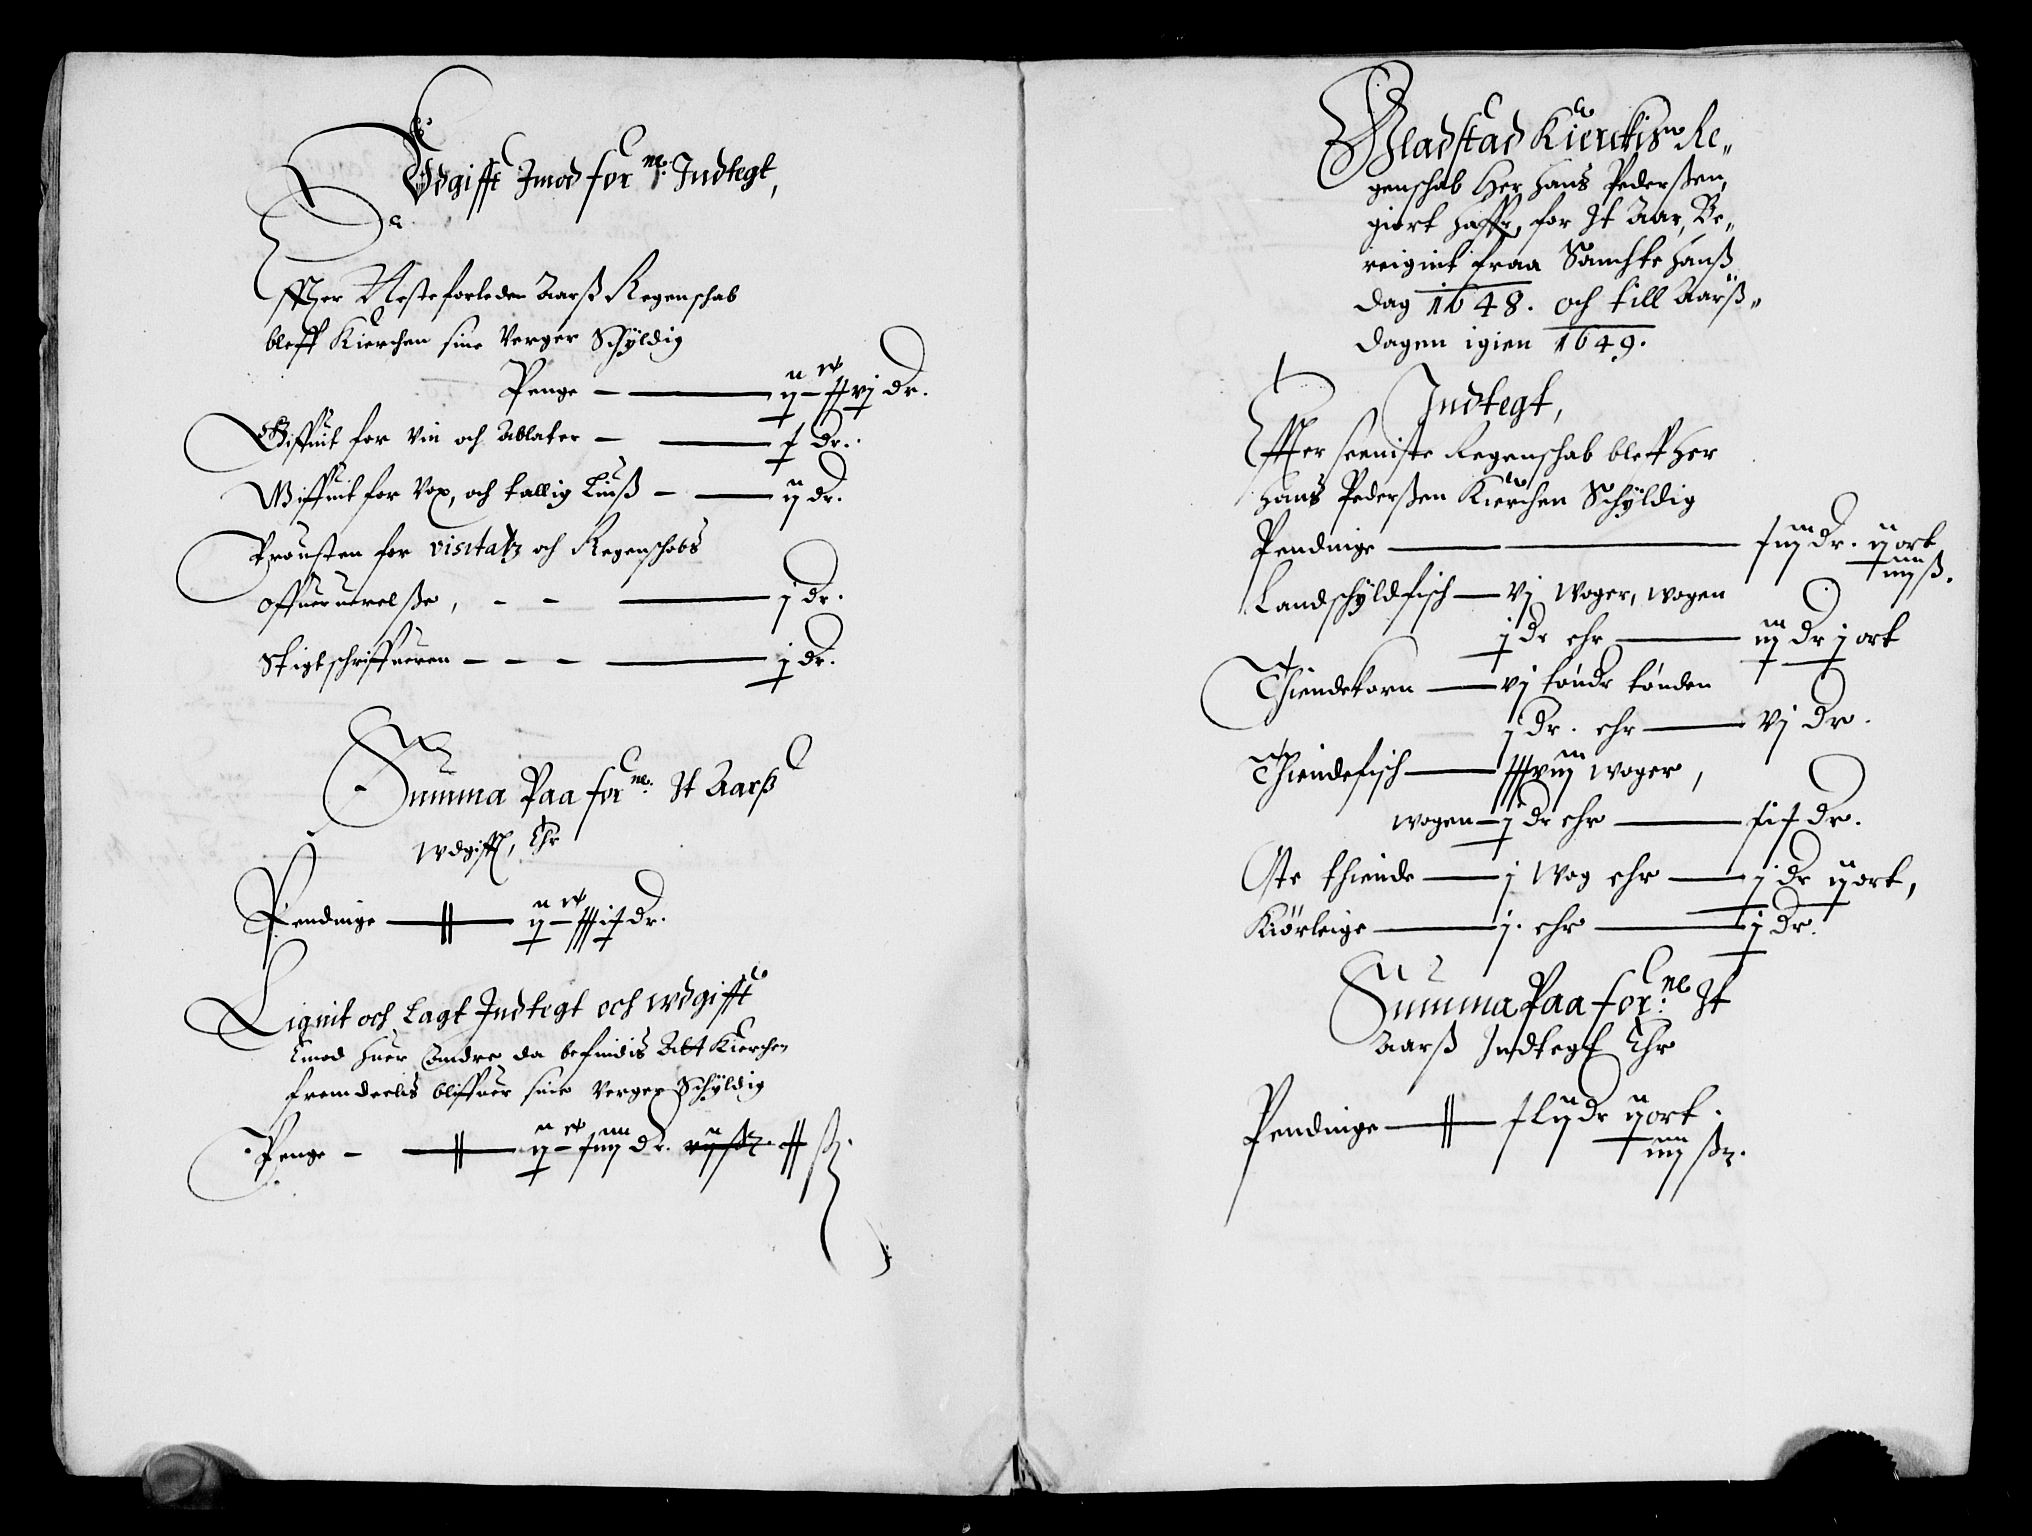 Vdgifft Imod forne: Indtegt,
Effter Nesteforleden Aarß Regenschab
bleff Kierchen sine Verger Schÿldig
Penge — ij c xxvj dr.
Giffuit for Vin och Ablater — x dr.
Giffuit for Vox, och tallig Liuß — ij dr.
Prousten for visitatz och Regenschabs
offueruerelße, - - j dr.
Stigtschriffueren - - - j dr.
Summa Paa forne: It Aarß
Wdgifft, Ehr
Pendinge — ij c
Lignit och Lagt Indtegt och wdgifft
Emod huer Andre da befindis Att Kierchen
fremdeelis bliffuer sine Verger Schÿldig
Penge — ij c xiiij dr. ß.
Gladstad Kierckis Re„
genschab Her Hans Pederßen,
giort haffr, for It Aar, Be„
reignit fraa Sanckte Hanß
dag 1648. och till Aarß„
dagen igien 1649.
Indtegt,
Effter seeniste Regenschab bleff Her
Hans Pederßen Kierchen Schÿldig
Pendinge — xiij dr. ij ort
iiij ß.
Landschÿldfisch — vj woger, wogen
j dr ehr — iij dr j ort
Thiendekorn — vj tønde tønden
j dr. ehr — vj dr.
Thiendefisch — woger,
wogen — j dr ehr — dr.
Oste thiende — j Wog ehr — j dr ij ort,
Kiørleige — j. ehr — j dr.
Summa Paa forne: It
Aarß Indtegt Ehr
Pendinge — xlij dr ij ort.
iiij ß.